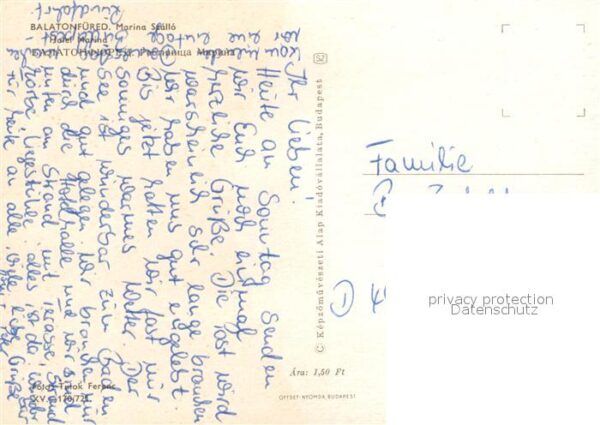 BALATONFÜRED. Marina Szálló
Hotel Marina
Гостиница Марина
Ihr Lieben!
Heute an Sonntag senden
wir Euch noch einmal
herzliche Grüße. Die Post wird
warscheinlich sehr lange brauchen
Wir haben uns gut eingelebt
Bis jetzt hatten wir fast nur
sonniges warmes Wetter. Der
See ist wunderbar zum Baden
und gut gelegen. Wir brauchen nur
durch die Hotelhalle und wir sind
unten am Strand mit Terasse, Strand
Liegestühle alles ist da
für heute an alle viele liebe Grüße
Rundfahrt.
Foto: Török Ferenc
XV. 170/725
© Képzőművészeti Alap Kiadóvállalata, Budapest
Ára: 1,50 Ft
OFFSET-NYOMDA, BUDAPEST
Familie
D
privacy protection
Datenschutz